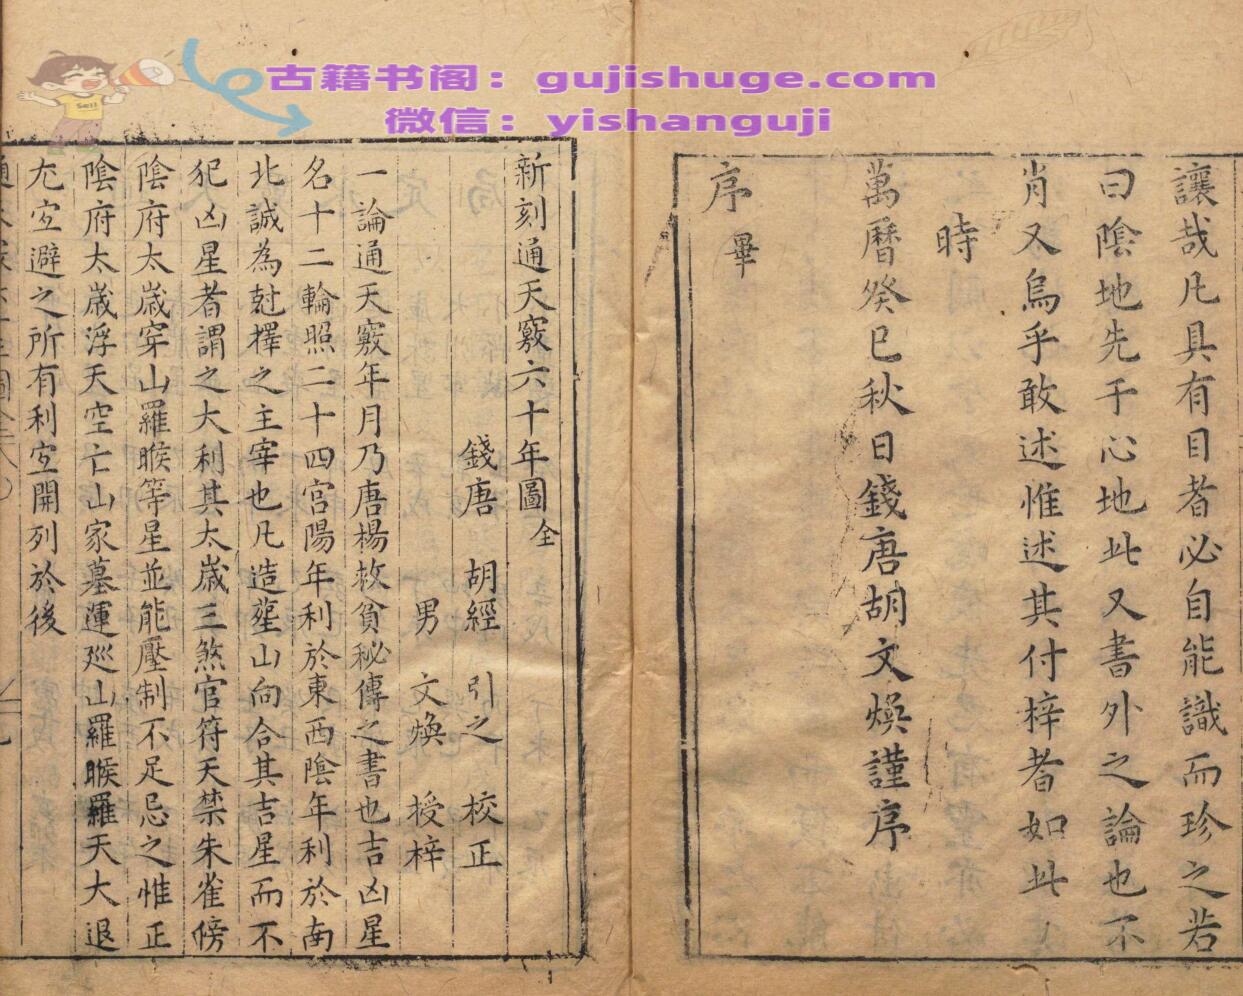 古籍书阁：gujishuge.com
微信：yishanguji
讓哉凡具有目者必自能識而珍之若
曰陰地先于心地此又書外之論也不
肖又烏乎敢述惟述其付梓者如此
時
萬曆癸巳秋日錢唐胡文煥謹序
序畢
新刻通天竅六十年圖全
錢唐 胡經 引之 校正
男 文煥 授梓
一論通天竅年月乃唐楊救貧秘傳之書也吉凶星
名十二輪照二十四宮陽年利於東西陰年利於南
北誠為尅擇之主宰也凡造塟山向合其吉星而不
犯凶星者謂之大利其太歲三煞官符天禁朱雀傍
陰府太歲穿山羅睺等星並能壓制不足忌之惟正
陰府太歲浮天空亡山家墓運巡山羅睺羅天大退
尤宐避之所有利宐開列於後